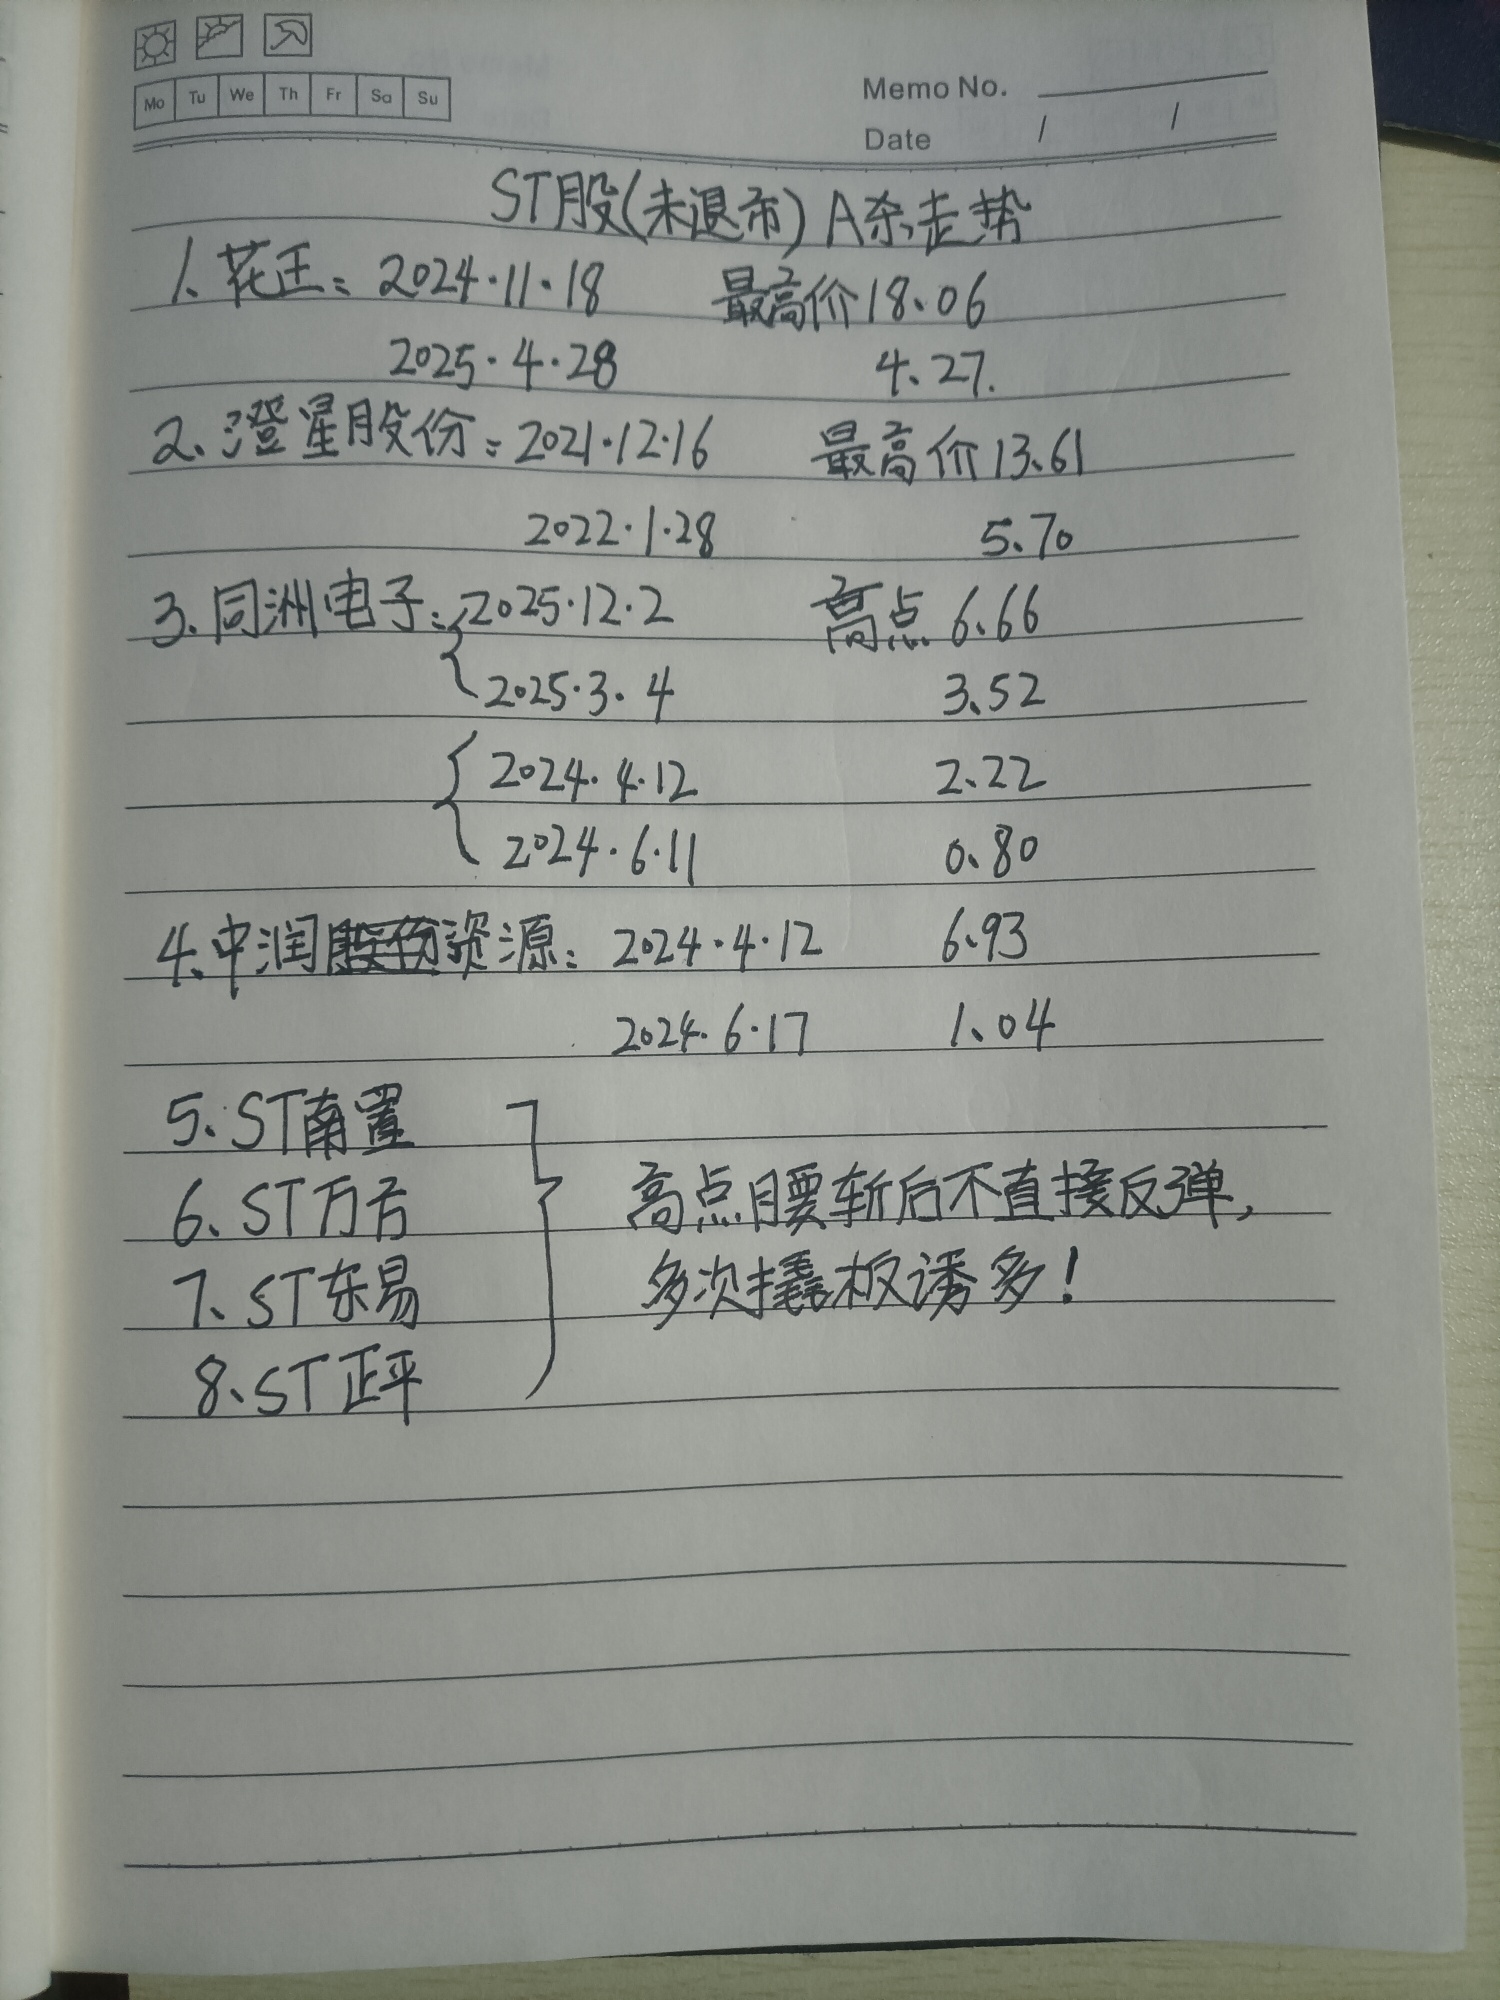 Mo Tu We Th Fr Sa Su
Memo No.
Date / /
ST股(未退市)A杀走势
1、花王：2024·11·18 最高价18.06
2025·4·28 4.27.
2、澄星股份：2021·12·16 最高价13.61
2022·1·28 5.70
3、同洲电子：2025·12·2 高点6.66
2025·3·4 3.52
2024·4·12 2.22
2024·6·11 0.80
4、中润资源：2024·4·12 6.93
2024·6·17 1.04
5、ST南置
6、ST万方
高点腰斩后不直接反弹，
7、ST东易
多次撬板诱多！
8、ST正平